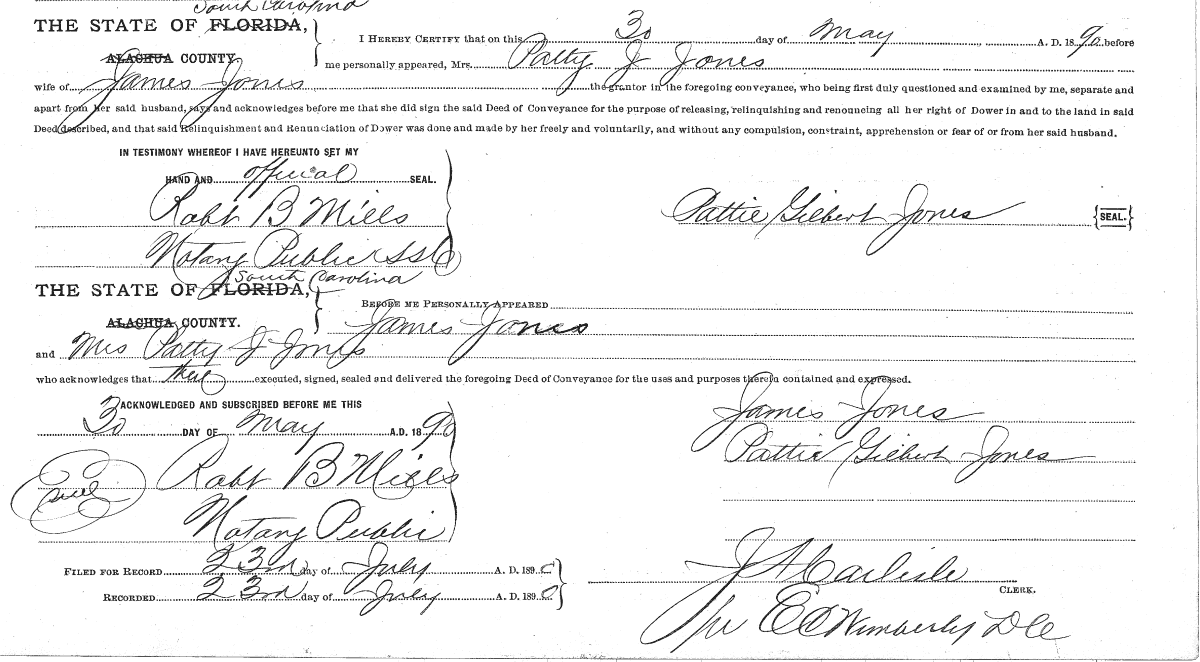 South Carolina
THE STATE OF FLORIDA,
ALACHUA COUNTY.
I HEREBY CERTIFY that on this 30 day of May A. D. 1890 before
me personally appeared, Mrs. Patty J Jones
wife of James Jones the grantor in the foregoing conveyance, who being first duly questioned and examined by me, separate and
apart from her said husband, says and acknowledges before me that she did sign the said Deed of Conveyance for the purpose of releasing, relinquishing and renouncing all her right of Dower in and to the land in said
Deed described, and that said Relinquishment and Renunciation of Dower was done and made by her freely and voluntarily, and without any compulsion, constraint, apprehension or fear of or from her said husband.
IN TESTIMONY WHEREOF I HAVE HEREUNTO SET MY
HAND AND official SEAL.
Robt B Mills
Pattie Gilbert Jones {SEAL.}
Notary Public
South Carolina
THE STATE OF FLORIDA,
ALACHUA COUNTY.
BEFORE ME PERSONALLY APPEARED
James Jones
and Mrs Patty J Jones
who acknowledges that they executed, signed, sealed and delivered the foregoing Deed of Conveyance for the uses and purposes therein contained and expressed.
ACKNOWLEDGED AND SUBSCRIBED BEFORE ME THIS
30 DAY OF May A.D. 1890
James Jones
Pattie Gilbert Jones
seal Robt B Mills
Notary Public
FILED FOR RECORD 23rd day of July A. D. 1890
RECORDED 23rd day of July A. D. 1890
J A Carlisle
CLERK.
per E C Wimberly D C